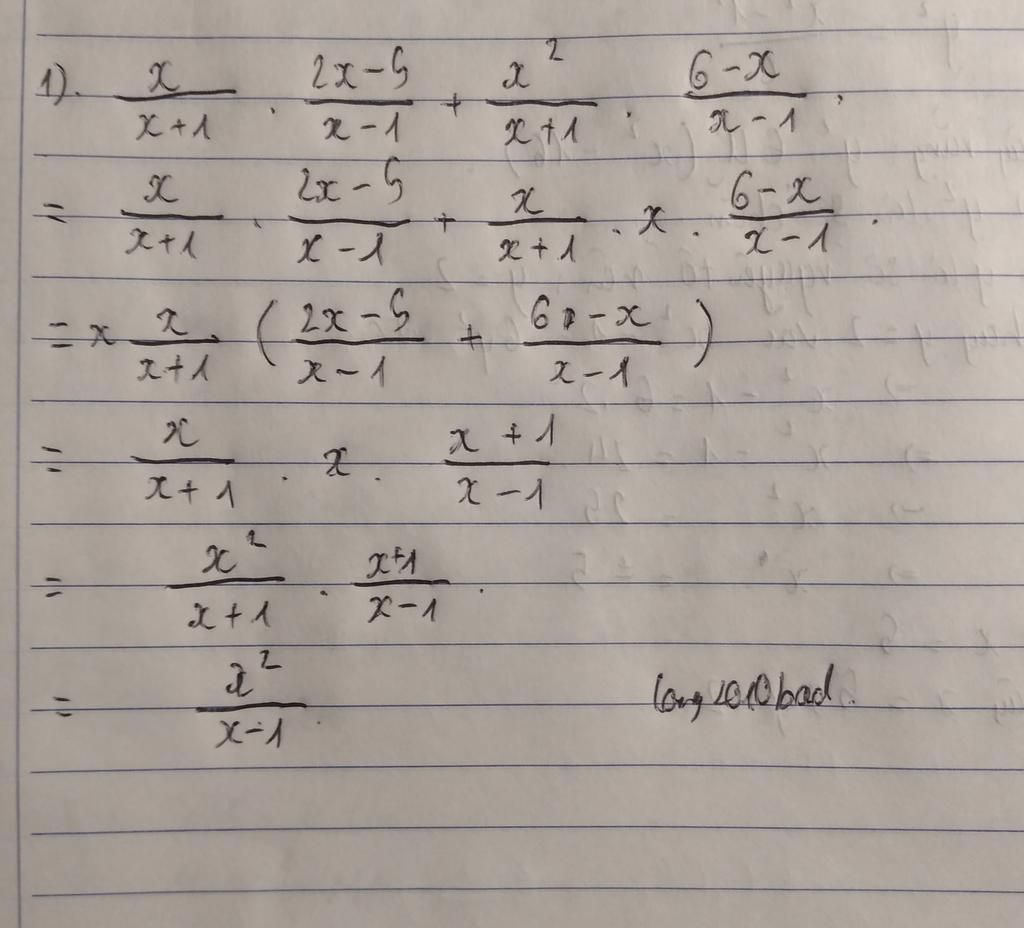 1). x/(x+1) . (2x-5)/(x-1) + x²/(x+1) . (6-x)/(x-1) ;
= x/(x+1) . (2x-5)/(x-1) + x/(x+1) . x . (6-x)/(x-1) .
= x x/(x+1) ( (2x-5)/(x-1) + (6-x)/(x-1) )
= x/(x+1) . x . (x+1)/(x-1)
= x²/(x+1) . (x+1)/(x-1) .
= x²/(x-1) .